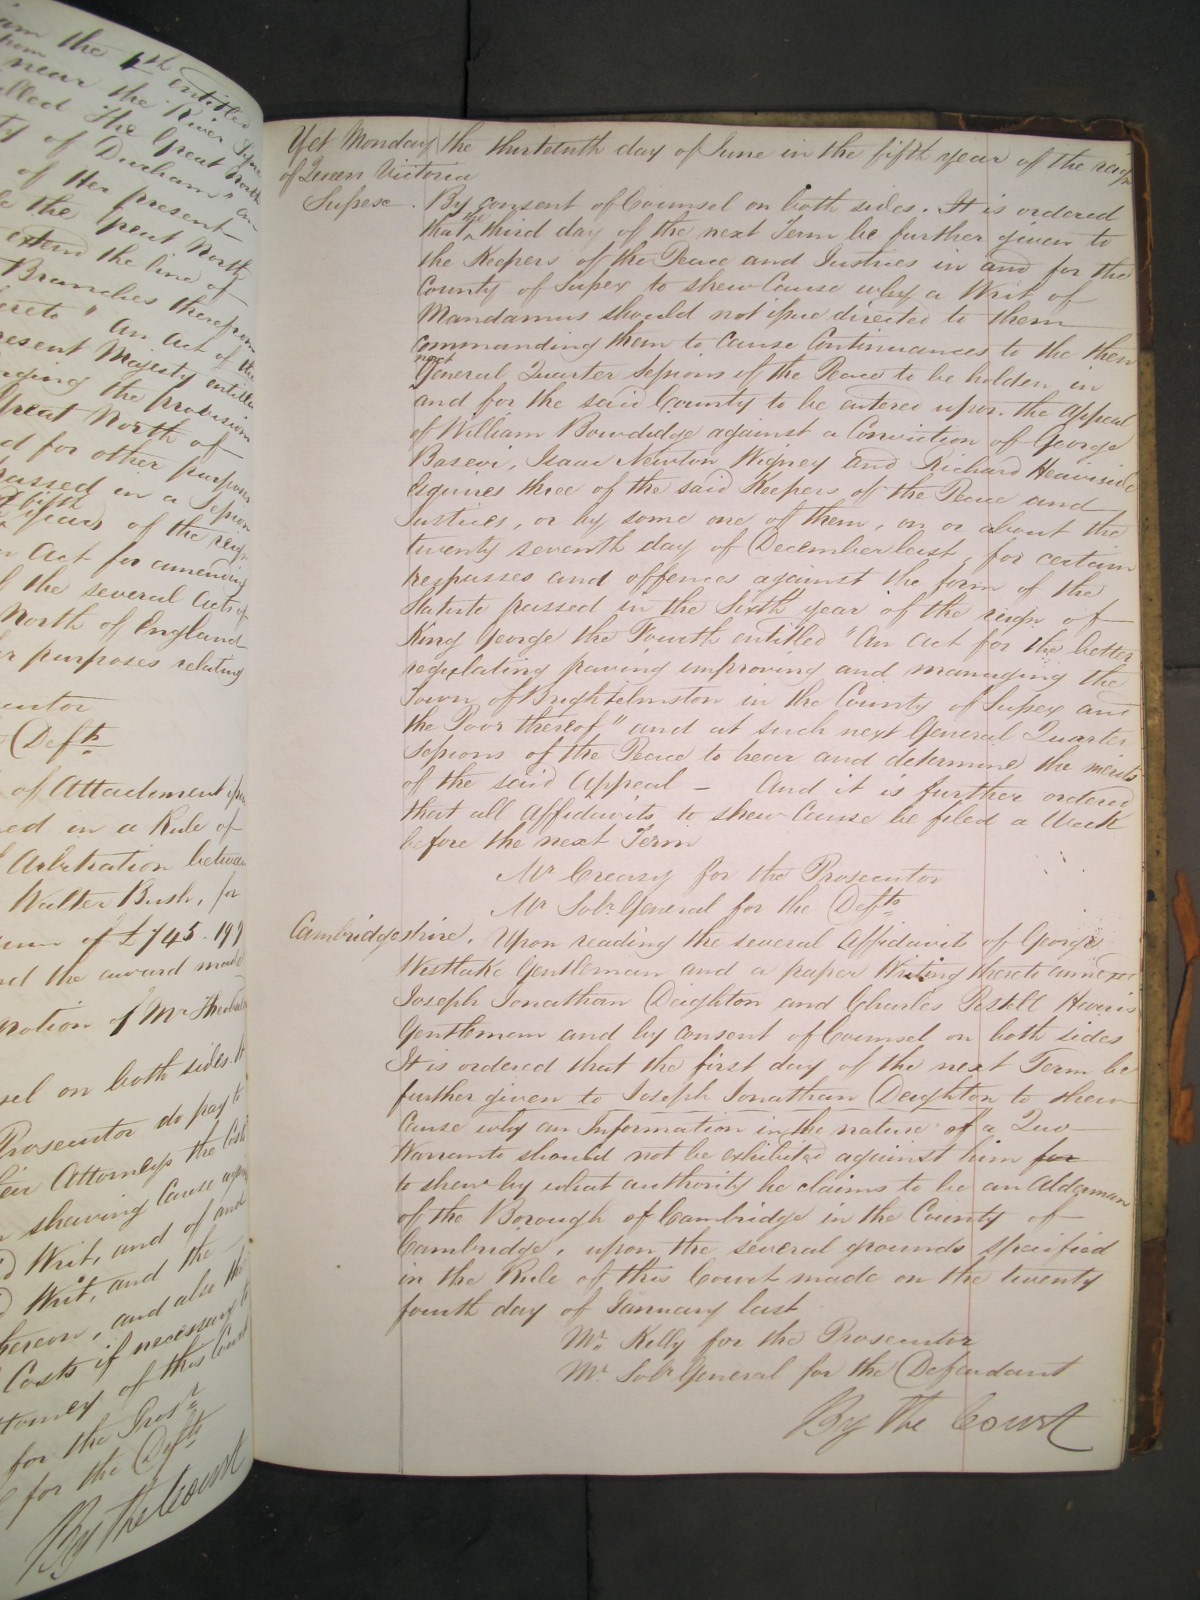 im the 4th entitled
from
near the River Tyne
called The Great North
ty of Durham" an
of Her present
the great North
extend the line of
Branches therefrom
hereto" An Act of the
resent Majesty entitled
nging the provisions
Great North of
d for other purposes
passed in a Session
fifth
years of the reign
n Act for amending
f the several Acts of
North of England
r purposes relating
entor
Defts
of Attachment issu
ed in a Rule of
Arbitration between
Walter Bush, for
um of £745.19
nd the award made
motion of Mr
sel on both sides. It
Prosecutor do pay to
eir Attorneys the Costs
shewing Cause again
Writ, and of and
Writ, and the
hereon, and also the
Costs if necessary
ttorney of this Court
for the Prosr
for the Defts
By the Court
Yet Monday the thirteenth day of June in the fifth year of the reign
of Queen Victoria
Sussex. By consent of Counsel on both sides. It is ordered
that the third day of the next Term be further given to
the Keepers of the Peace and Justices in and for the
County of Sussex to shew Cause why a Writ of
Mandamus should not issue directed to them
commanding them to cause Continuances to the then
next
General Quarter Sessions of the Peace to be holden in
and for the said County to be entered upon the Appeal
of William Bowdidge against a Conviction of George
Basevi, Isaac Newton Wigney and Richard Heaviside
Esquires three of the said Keepers of the Peace and
Justices, or by some one of them, on or about the
twenty seventh day of December last, for certain
trespasses and offences against the form of the
Statute passed in the Sixth year of the reign of
King George the Fourth entitled "An Act for the better
regulating paving improving and managing the
Town of Brighthelmston in the County of Sussex and
the Poor thereof" and at such next General Quarter
Sessions of the Peace to hear and determine the merits
of the said Appeal — And it is further ordered
that all Affidavits to shew Cause be filed a Week
before the next Term
Mr Creasy for the Prosecutor
Mr Solr General for the Defts
Cambridgeshire. Upon reading the several Affidavits of George
Westlake Gentleman and a paper Writing thereto annexed
Joseph Jonathan Deighton and Charles Pestell Harris
Gentlemen and by consent of Counsel on both sides
It is ordered that the first day of the next Term be
further given to Joseph Jonathan Deighton to shew
Cause why an Information in the nature of a Quo
Warranto should not be exhibited against him for
to shew by what authority he claims to be an Alderman
of the Borough of Cambridge in the County of
Cambridge, upon the several grounds specified
in the Rule of this Court made on the twenty
fourth day of January last
Mr Kelly for the Prosecutor
Mr Solr General for the Defendant
By the Court